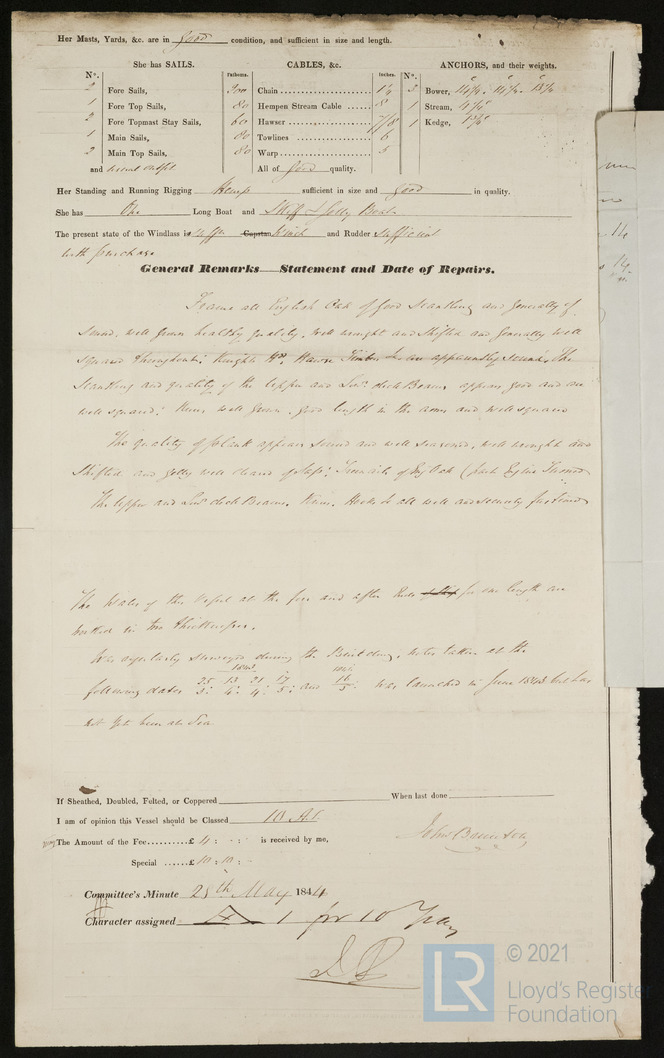 Her Masts, Yards, &c. are in good condition, and sufficient in size and length.
She has SAILS.
CABLES, &c.
ANCHORS, and their weights.
N°. Fathoms. Inches. N°.
2 Fore Sails, 200 Chain
3 Bower,
1 Fore Top Sails, 80 Hempen Stream Cable 8
1 Stream,
2 Fore Topmast Stay Sails, 60 Hawser
1 Kedge,
1 Main Sails, 80 Towlines 6
2 Main Top Sails, 80 Warp 5
and All of good quality.
Her Standing and Running Rigging Hemp sufficient in size and good in quality.
She has One Long Boat and Skiff & Jolly Boat
The present state of the Windlass is Capstan Winch and Rudder sufficient
with purchase
General Remarks Statement and Date of Repairs.
Frame all English Oak of good Scantling and generally of
sound, well grown healthy quality, well wrought and shifted and generally well
squared throughout: are apparently sound. The
Scantling and quality of the upper and deck Beams appear good and are
well squared: Knees well grown, good length in the arms and well squared
The quality of plank appears sound and well seasoned, well wrought and
shifted and well cleared of sap: Treenails of Eng Oak (part Engine Turned
The upper and deck Beams, Knees, Hooks &c all well and securely fastened
The of this Vessel at the fore and after for one length are
worked in two thicknesses.
Was regularly surveyed during the Building, notes taken at the
following dates 25 13 21 17 and 16 was launched in June 1843 but has
3: 4: 4: 5: 5:
not yet been at Sea
If Sheathed, Doubled, Felted, or Coppered When last done
I am of opinion this Vessel should be Classed 10 A1
The Amount of the Fee £ 4 : - : - is received by me,
John Brunton
Special £ 10 : 10 : -
Committee's Minute 28th May 1844
Character assigned A 1 for 10 Years
© 2021
LR
Lloyd's Register
Foundation